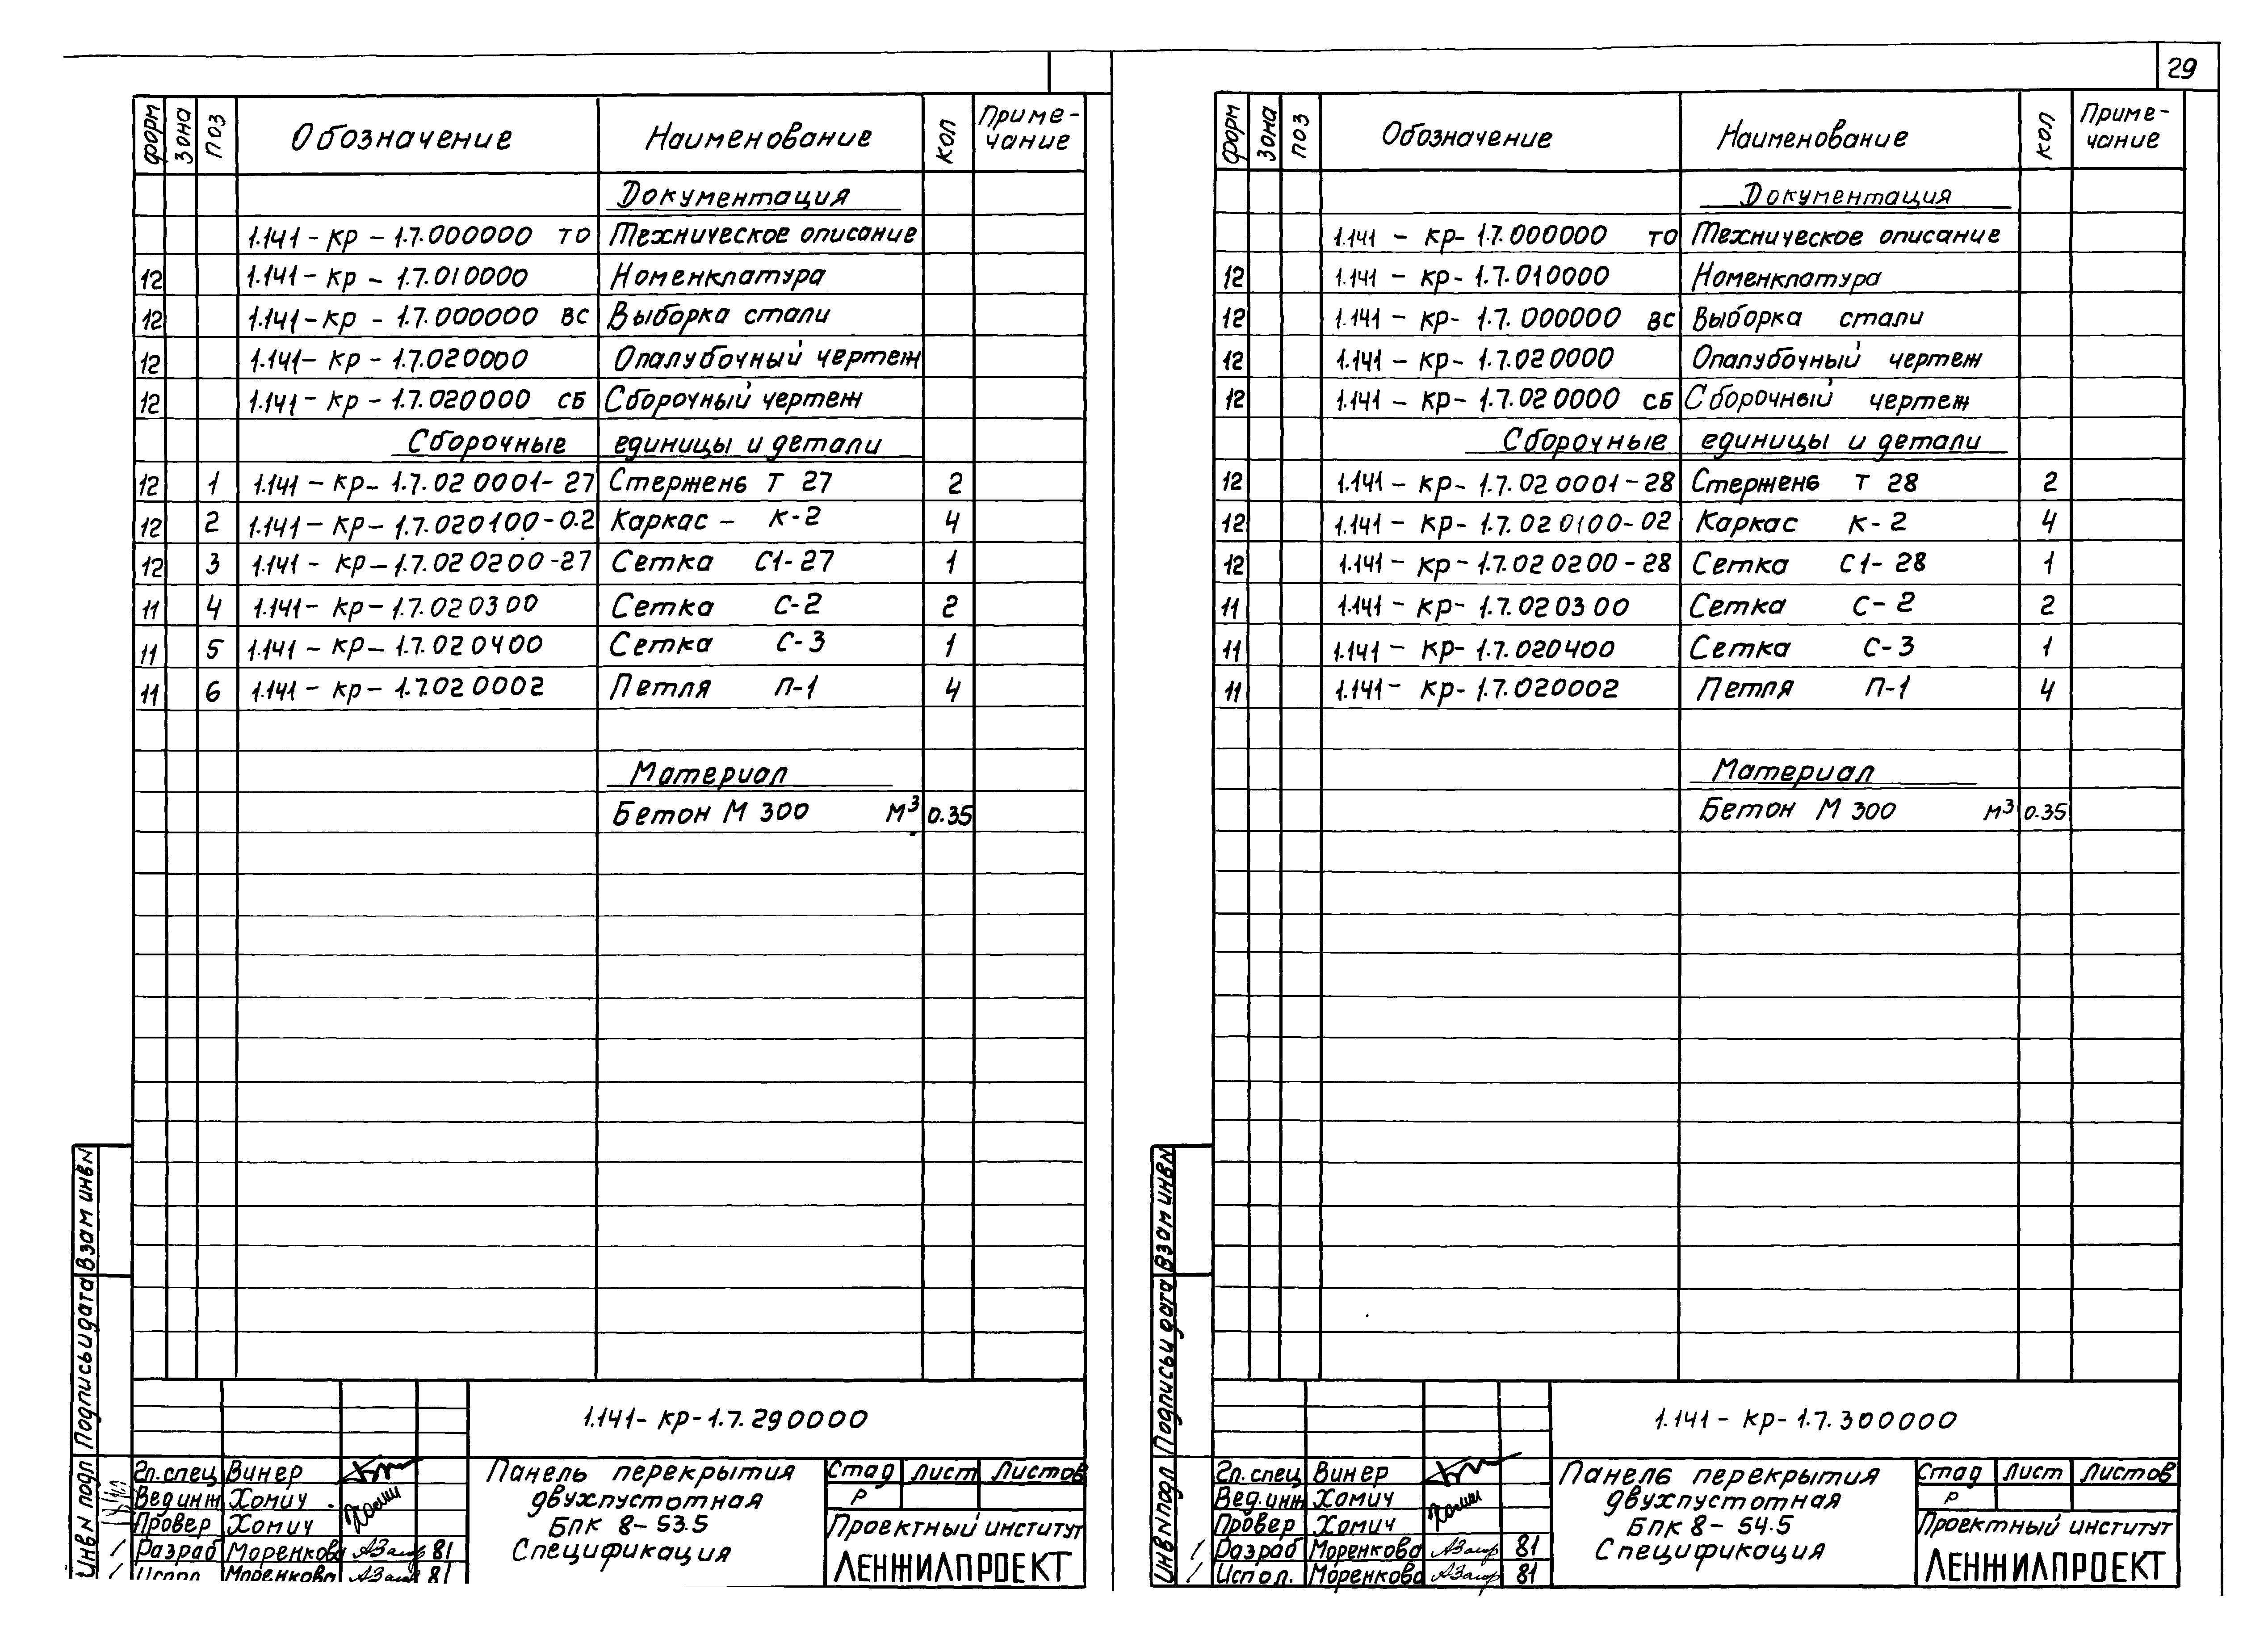 29
форм зона поз Обозначение Наименование кол Приме-
чание
Документация
1.141-кр-1.7.000000 ТО Техническое описание
12 1.141-кр-1.7.010000 Номенклатура
12 1.141-кр-1.7.000000 ВС Выборка стали
12 1.141-кр-1.7.020000 Опалубочный чертеж
12 1.141-кр-1.7.020000 СБ Сборочный чертеж
Сборочные единицы и детали
12 1 1.141-кр-1.7.020001-27 Стержень Т 27 2
12 2 1.141-кр-1.7.020100-02 Каркас - К-2 4
12 3 1.141-кр-1.7.020200-27 Сетка С1-27 1
11 4 1.141-кр-1.7.020300 Сетка С-2 2
11 5 1.141-кр-1.7.020400 Сетка С-3 1
11 6 1.141-кр-1.7.020002 Петля П-1 4
Материал
Бетон М 300 м³ 0.35
Взам инв N
Подпись и дата
Инв N подл
1.141-кр-1.7.290000
Гл.спец Винер
Вед инж Хомич
Провер Хомич
Разраб Моренкова 81
Испол Моренкова 81
Панель перекрытия
двухпустотная
Бпк 8-53.5
Спецификация
Стад Лист Листов
Р
Проектный институт
ЛЕНЖИЛПРОЕКТ
форм зона поз Обозначение Наименование кол Приме-
чание
Документация
1.141-кр-1.7.000000 ТО Техническое описание
12 1.141-кр-1.7.010000 Номенклатура
12 1.141-кр-1.7.000000 ВС Выборка стали
12 1.141-кр-1.7.020000 Опалубочный чертеж
12 1.141-кр-1.7.020000 СБ Сборочный чертеж
Сборочные единицы и детали
12 1.141-кр-1.7.020001-28 Стержень Т 28 2
12 1.141-кр-1.7.020100-02 Каркас К-2 4
12 1.141-кр-1.7.020200-28 Сетка С1-28 1
11 1.141-кр-1.7.020300 Сетка С-2 2
11 1.141-кр-1.7.020400 Сетка С-3 1
11 1.141-кр-1.7.020002 Петля П-1 4
Материал
Бетон М 300 м³ 0.35
Взам инв N
Подпись и дата
Инв N подл
1.141-кр-1.7.300000
Гл.спец Винер
Вед.инж Хомич
Провер Хомич
Разраб Моренкова 81
Испол. Моренкова 81
Панель перекрытия
двухпустотная
Бпк 8-54.5
Спецификация
Стад Лист Листов
Р
Проектный институт
ЛЕНЖИЛПРОЕКТ